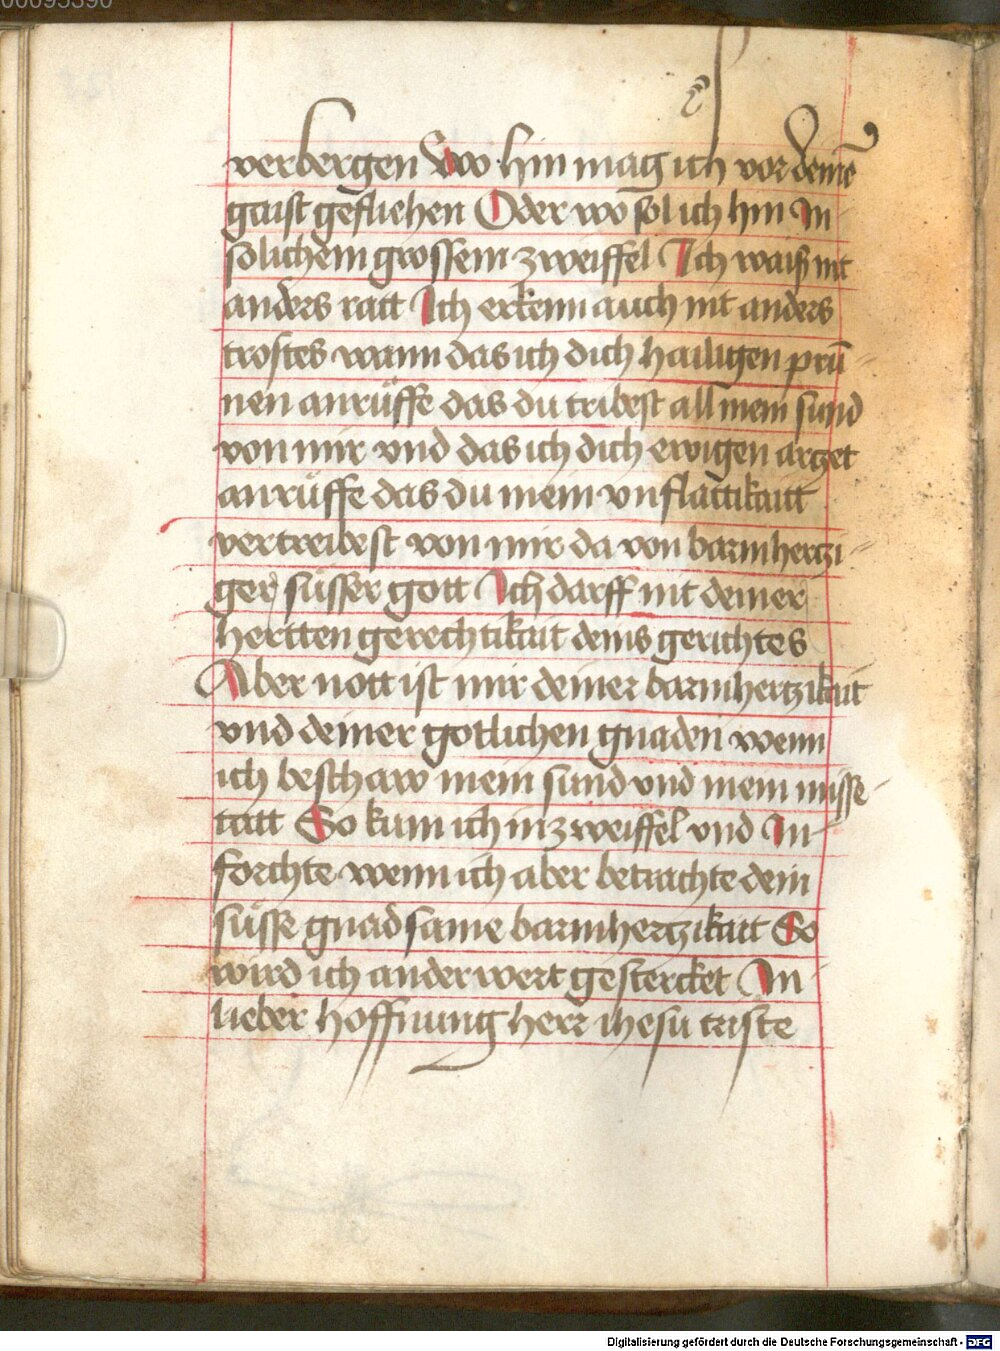 00095390
verbergen Wo hin mag ich vor deinē
gaist gefliehen Oder wo sol ich hin In
solichem grossem zweiffel Ich waiß nit
anders ratt Ich erkenn auch nit anders
trostes wann das ich dich hailigen prū
nen anrüffe das du tribest all mein sund
von mir vnd das ich dich ewigen arczet
anrüffe das du mein vnflattikaitt
vertreibest von mir da von barmhertzi
ger süsser gott Ich darff nit deiner
hertten gerechtikait deins gerichtes
Aber nott ist mir deiner barmhertzikait
vnd deiner gotlichen gnaden wenn
ich beschaw mein sund vnd mein misse
tatt So kum ich in zweiffel vnd In
forchte wenn ich aber betrachte dein
süsse gnadsame barmhertzikait So
wird ich anderwert gestercket In
lieber hoffnung herr ihesu criste
Digitalisierung gefördert durch die Deutsche Forschungsgemeinschaft - DFG